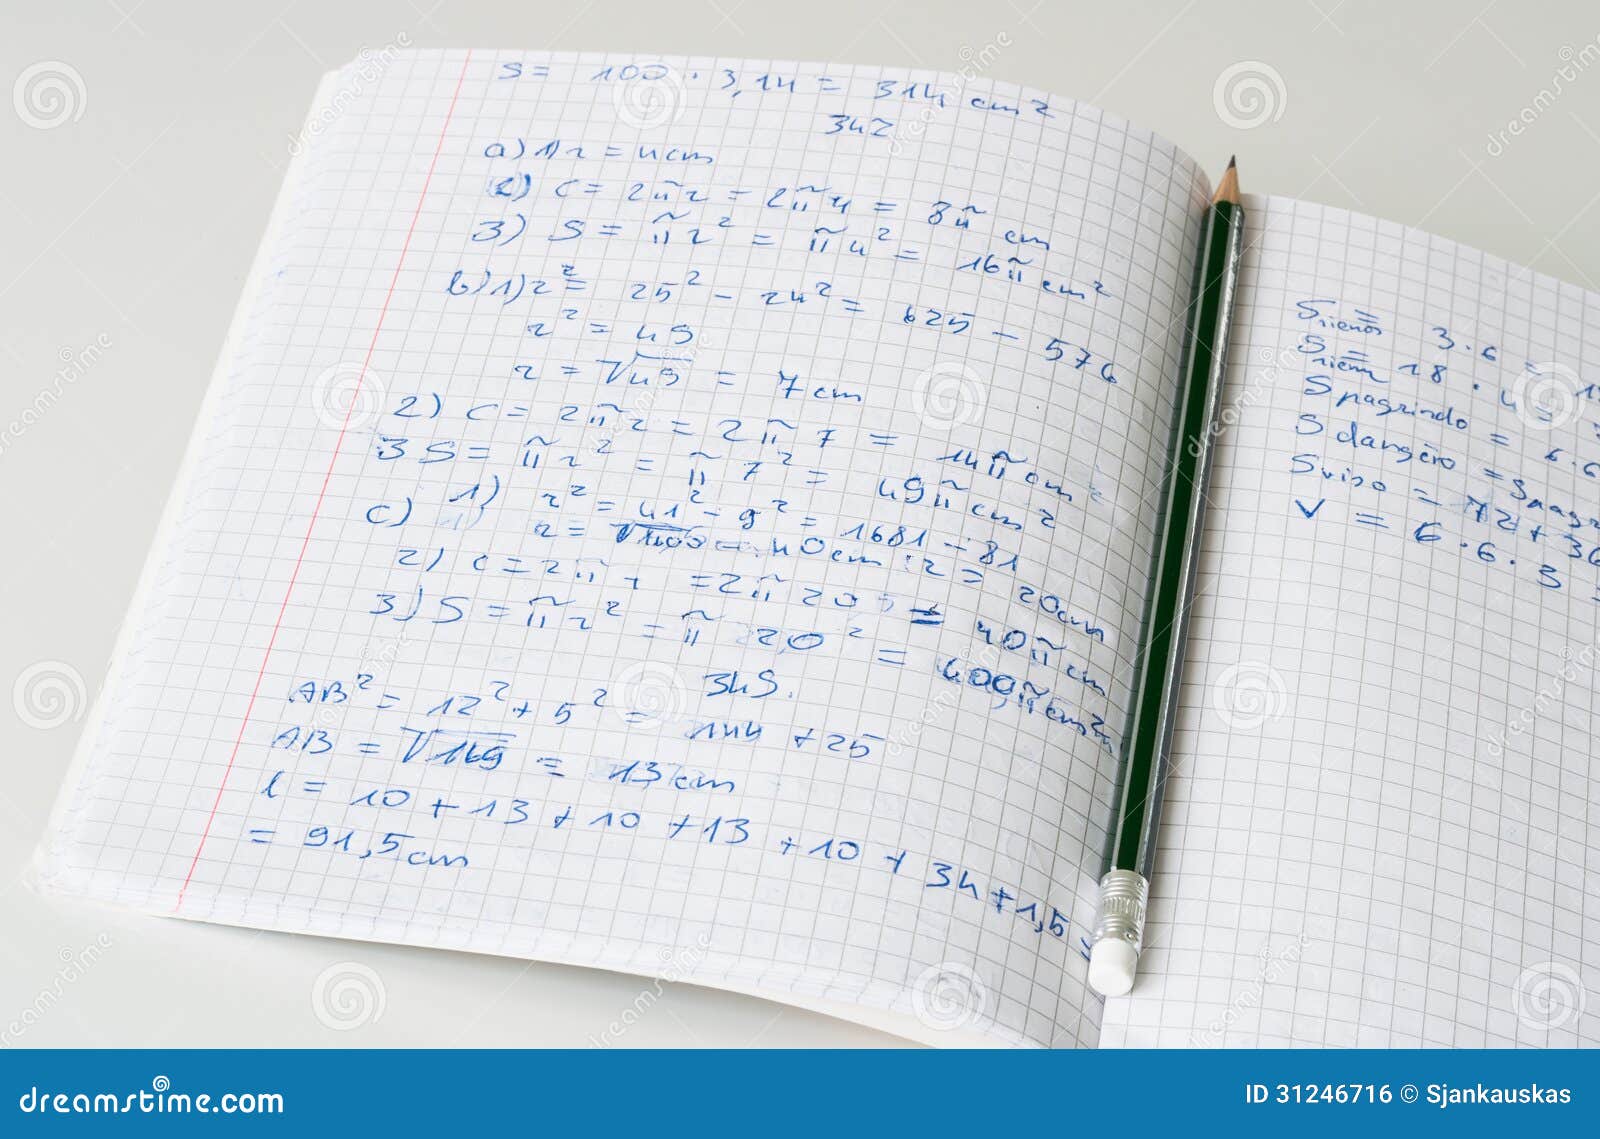 S = 100 · 3,14 = 314 cm²
342
a) 1) r = 4 cm
2) C = 2πr = 2π4 = 8π cm
3) S = πr² = π4² = 16π cm²
b) 1) r² = 25² - 24² = 625 - 576
r² = 49
r = √49 = 7 cm
2) C = 2πr = 2π7 = 14π cm
3 S = πr² = π7² = 49π cm²
c) 1) r² = 41² - 9² = 1681 - 81
r = √1600 = 40 cm : 2 = 20 cm
2) C = 2πr = 2π20 = 40π cm
3) S = πr² = π20² = 400π cm²
349.
AB² = 12² + 5² = 144 + 25
AB = √169 = 13 cm
l = 10 + 13 + 10 + 13 + 10 + 34 + 1,5
= 91,5 cm
Sienos = 3·6 =
Sienų = 18 · 4 =
S pagrindo = 6·6
S dangčio = Spagr
S viso = 72 + 36
V = 6·6·3
dreamstime.com
ID 31246716 © Sjankauskas